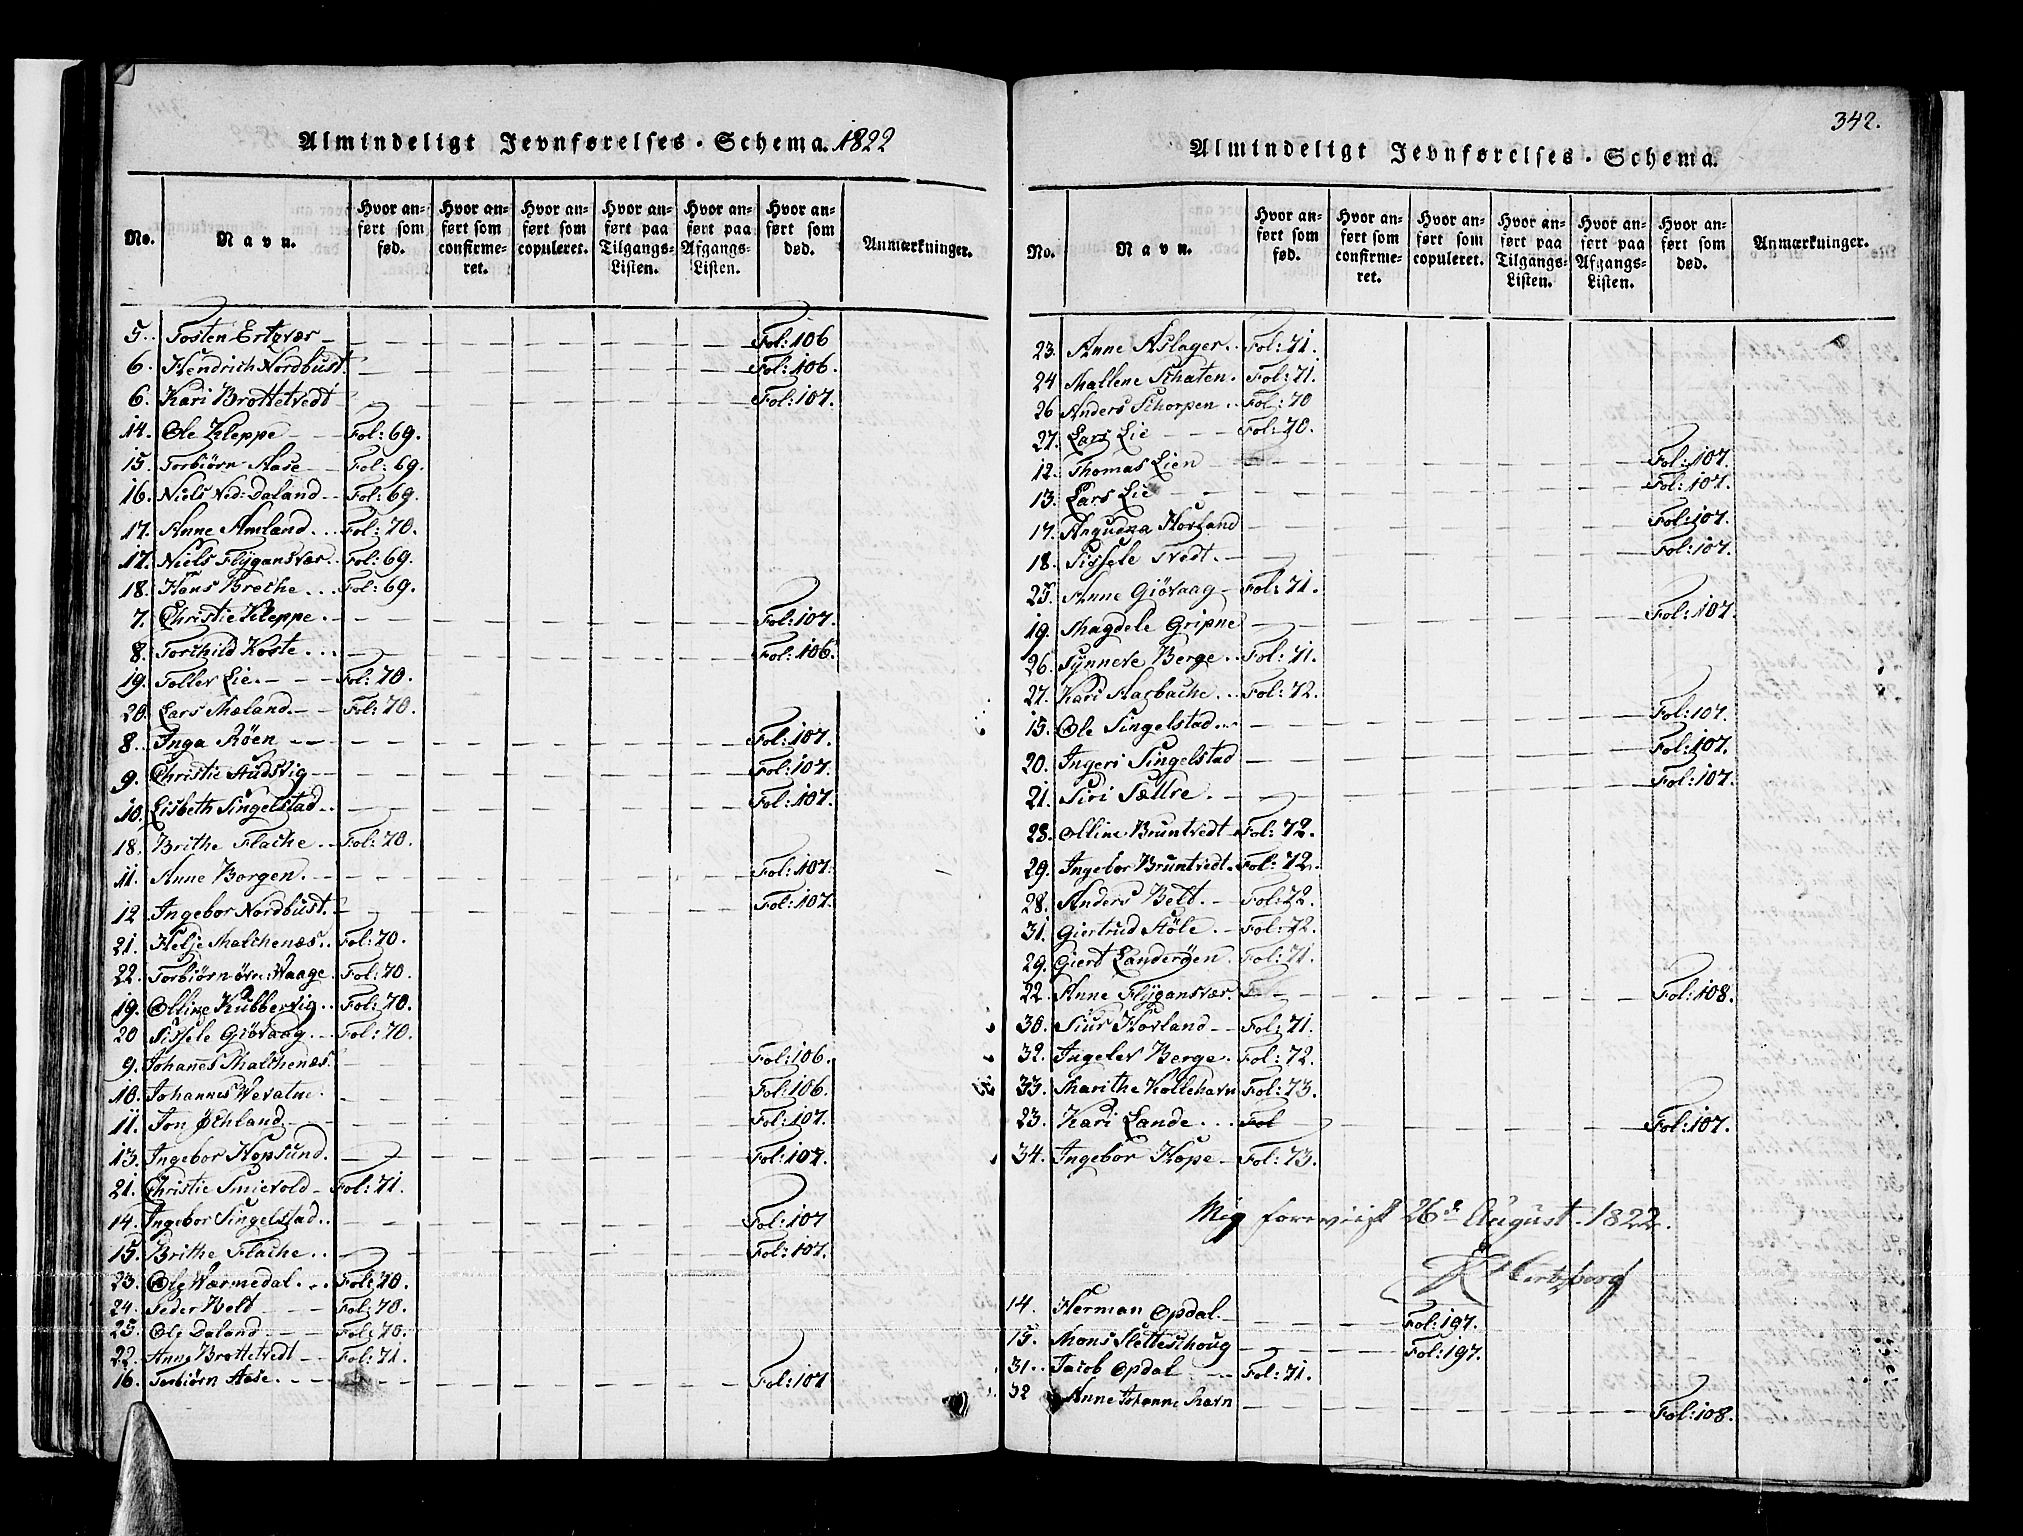 Almindeligt Jevnførelses-Schema. 1822
No. Navn. Hvor anført som fød. Hvor anført som confirmeret. Hvor anført som copuleret. Hvor anført paa Tilgangs-Listen. Hvor anført paa Afgangs-Listen. Hvor anført som død. Anmærkninger.
5. Tosten Ertzvær Fol: 106
6. Hendrich Nordhust Fol: 106.
6. Kari Brottetvedt Fol: 107.
14. Ole Kleppe Fol: 69.
15. Torbiørn Aase Fol: 69.
16. Niels Ned: Daland Fol: 69.
17. Anne Amland Fol: 70.
17. Niels Flygansvær Fol: 69.
18. Hans Brethe Fol: 69.
7. Christie Kleppe Fol: 107.
8. Torchild Koste Fol: 106.
19. Tollev Lie Fol: 70.
20. Lars Mæland Fol: 70.
8. Inga Røen Fol: 107.
9. Christie Hudsvig Fol: 107.
10. Lisbeth Singelstad Fol: 107.
18. Brithe Flache Fol: 70.
11. Anne Borgen Fol: 107.
12 Ingebor Nordhust Fol: 107.
21. Helje Malchenæs Fol: 70.
22. Torbiørn øvr: Waage Fol: 70.
19. Olline Kubbervig Fol: 70.
20 Sissele Giøvaag Fol: 70.
9. Johannes Malchenæs Fol: 106.
10. Johannes Wevatne Fol: 106.
11. Jon Øchland Fol: 107.
13. Ingebor Hopsund Fol: 107.
21. Christie Smievold Fol: 71.
14. Ingebor Singelstad Fol: 107
15. Brithe Flache Fol: 107.
23. Ole Wærmedal Fol: 70.
24. Peder Belt Fol: 70.
25. Ole Daland Fol: 70.
22. Anne Brottetvedt Fol: 71.
16. Torbiørn Aase Fol: 107
342.
Almindeligt Jevnførelses-Schema.
No. Navn. Hvor anført som fød. Hvor anført som confirmeret. Hvor anført som copuleret. Hvor anført paa Tilgangs-Listen. Hvor anført paa Afgangs-Listen. Hvor anført som død. Anmærkninger.
23. Anne Aslager Fol: 71.
24 Mallene Schaten Fol: 71.
26 Anders Schorpen Fol: 70
27. Lars Lie Fol: 70.
12. Thomas Lien Fol: 107.
13. Lars Lie Fol: 107.
17. Anguena Horland Fol: 107.
18. Sissele Tvedt Fol: 107.
25. Anne Giøvaag Fol: 71.
19. Magdele Gripne Fol: 107.
26. Synneve Berge Fol: 71.
27. Kari Aasbache Fol: 72.
15. Ole Singelstad Fol: 107.
20. Ingeri Singelstad Fol: 107.
21. Siri Sættre Fol: 107.
28. Olline Bruntvedt Fol: 72.
29. Ingebor Bruntvedt Fol: 72.
28. Anders Belt Fol: 72.
31. Giertrud Støle Fol: 72.
29. Giert Landerøen Fol: 71.
22. Anne Flygansvær Fol: 108.
30. Siur Horland Fol: 71.
32. Ingelev Berge Fol: 72.
33. Marithe Kollehavn Fol: 73.
23. Kari Lande Fol Fol: 107.
34. Ingebor Hope Fol: 73.
Mig foreviist 26de August 1822.
Hertzberg
14. Herman Opdal Fol: 197.
15. Mons Sletteschoug Fol: 197.
31. Jacob Opdal Fol: 71.
32 Anne Johanne Ravn Fol: 108.